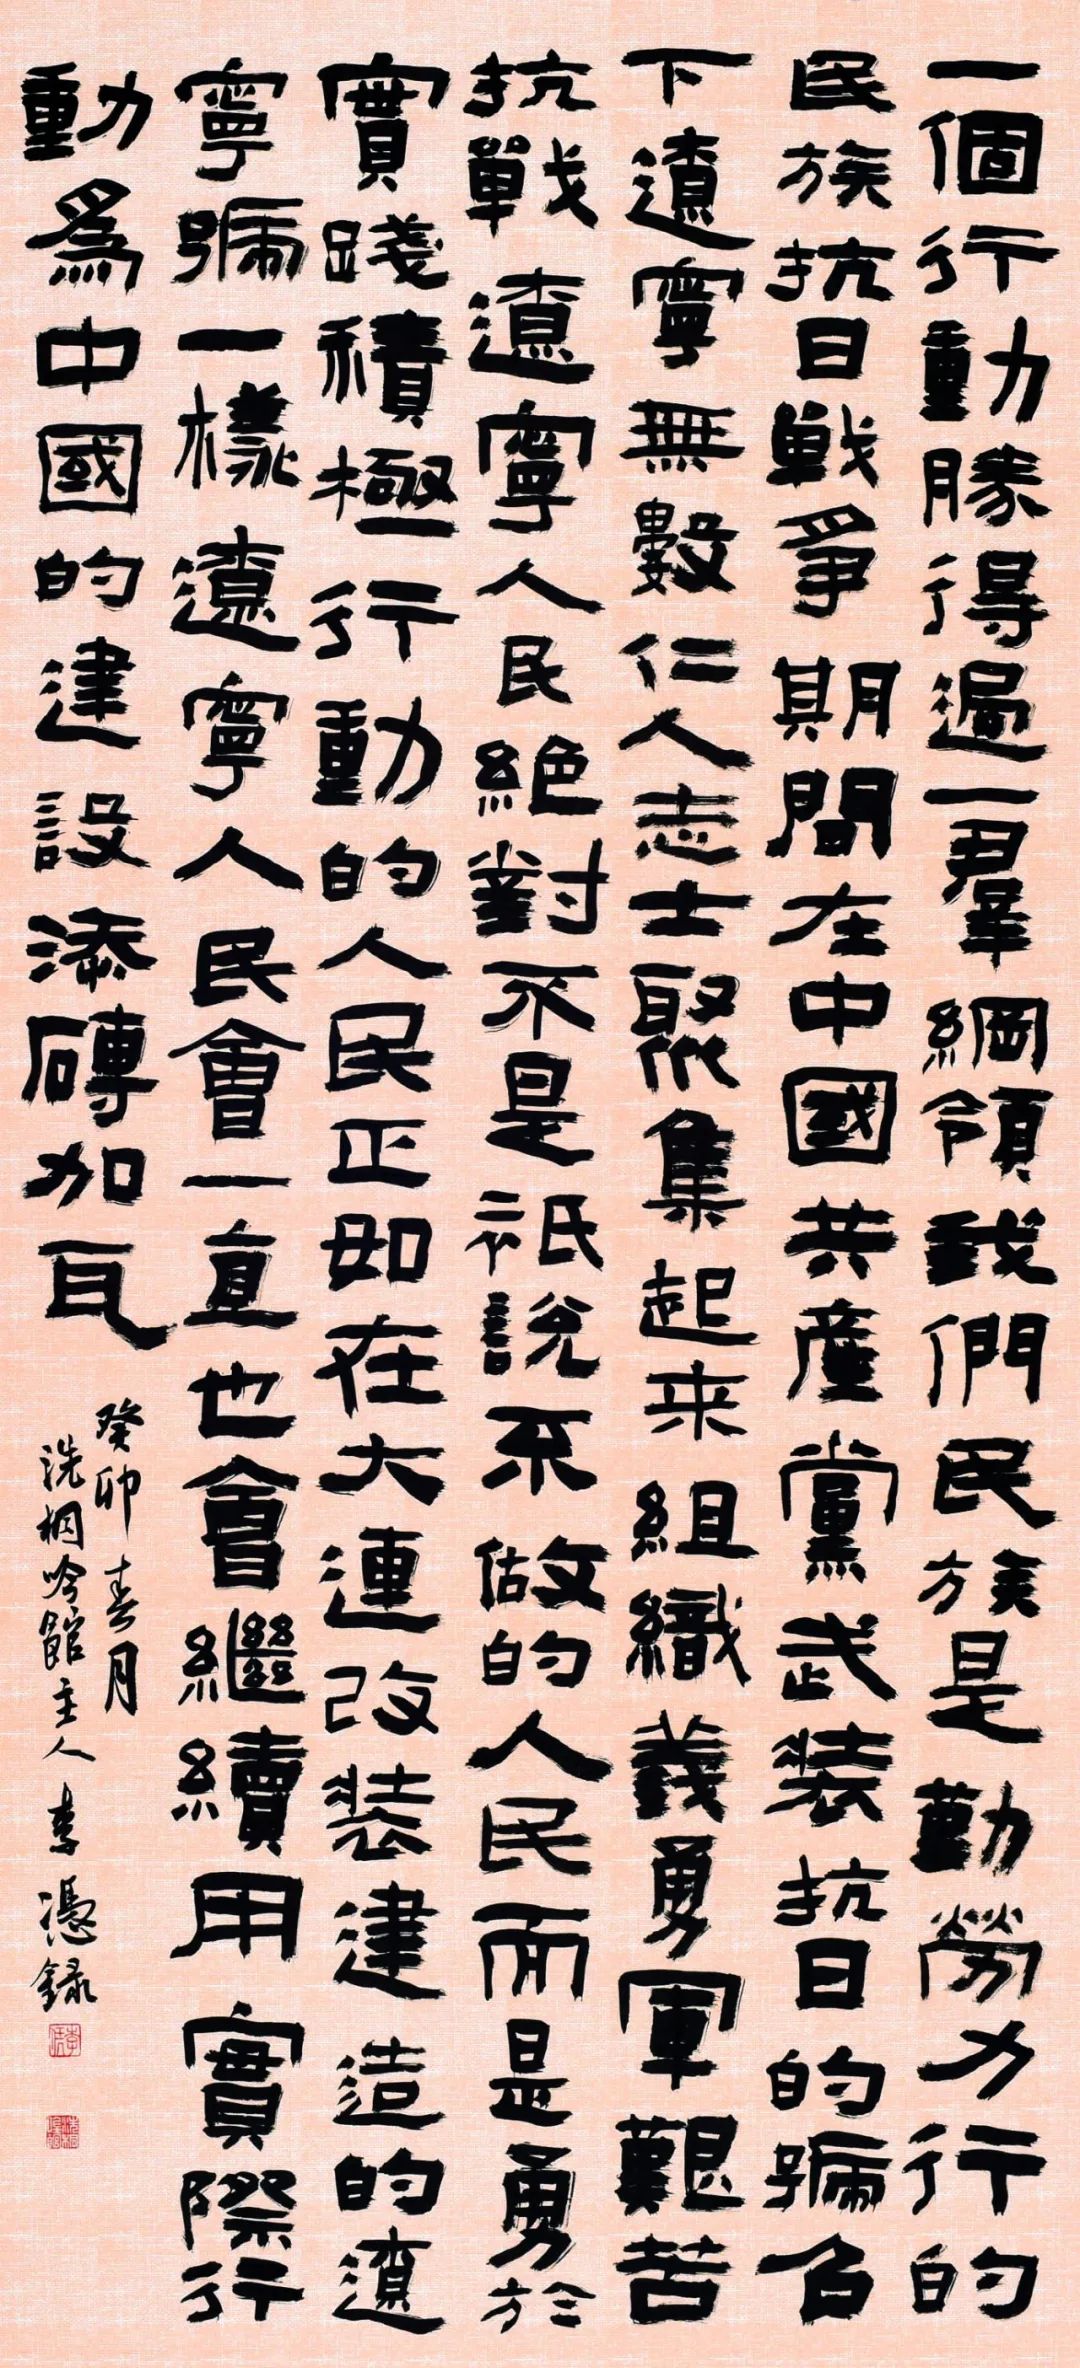 一個行動勝得過一羣綱領我們民族是勤勞力行的
民族抗日戰爭期間在中國共產黨武装抗日的號召
下遼寧無數仁人志士聚集起来組織義勇軍艱苦
抗戰遼寧人民絕對不是祇説不做的人民而是勇於
實踐積極行動的人民正如在大連改装建造的遼
寧號一樣遼寧人民會一直也會繼續用實際行
動為中國的建設添磚加瓦
癸卯春月
洗桐吟館主人李憑録